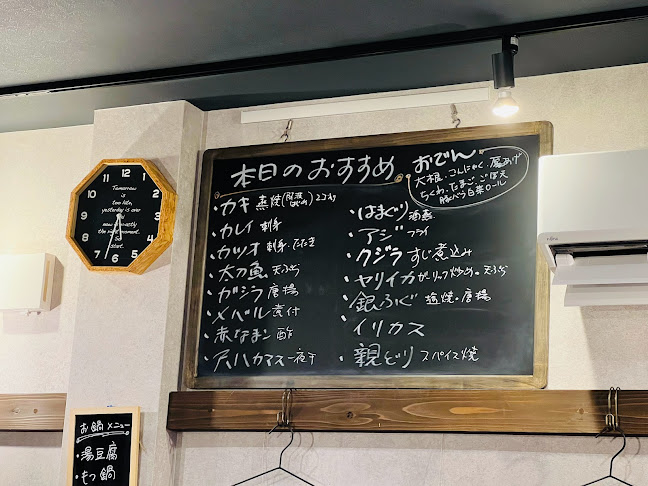 本日のおすすめ
・カキ 蒸焼
・カレイ 刺身
・カツオ 刺身・たたき
・太刀魚 天ぷら
・ガシラ 唐揚
・メバル 煮付
・赤なまこ 酢
・尺八カマス 一夜干
おでん
大根・こんにゃく・厚あげ
ちくわ・たまご・ごぼ天
豚バラ白菜ロール
・はまぐり 酒蒸
・アジ フライ
・クジラ すじ煮込み
・ヤリイカ ガーリック炒め・天ぷら
・銀ふぐ 塩焼・唐揚
・イリカス
・親どり スパイス焼
お鍋メニュー
・湯豆腐
・もつ鍋
12
1
2
3
4
5
6
7
8
9
10
11
Tomorrow
is
too late,
yesterday is over
now
the right moment,
so
start.
FUJITSU